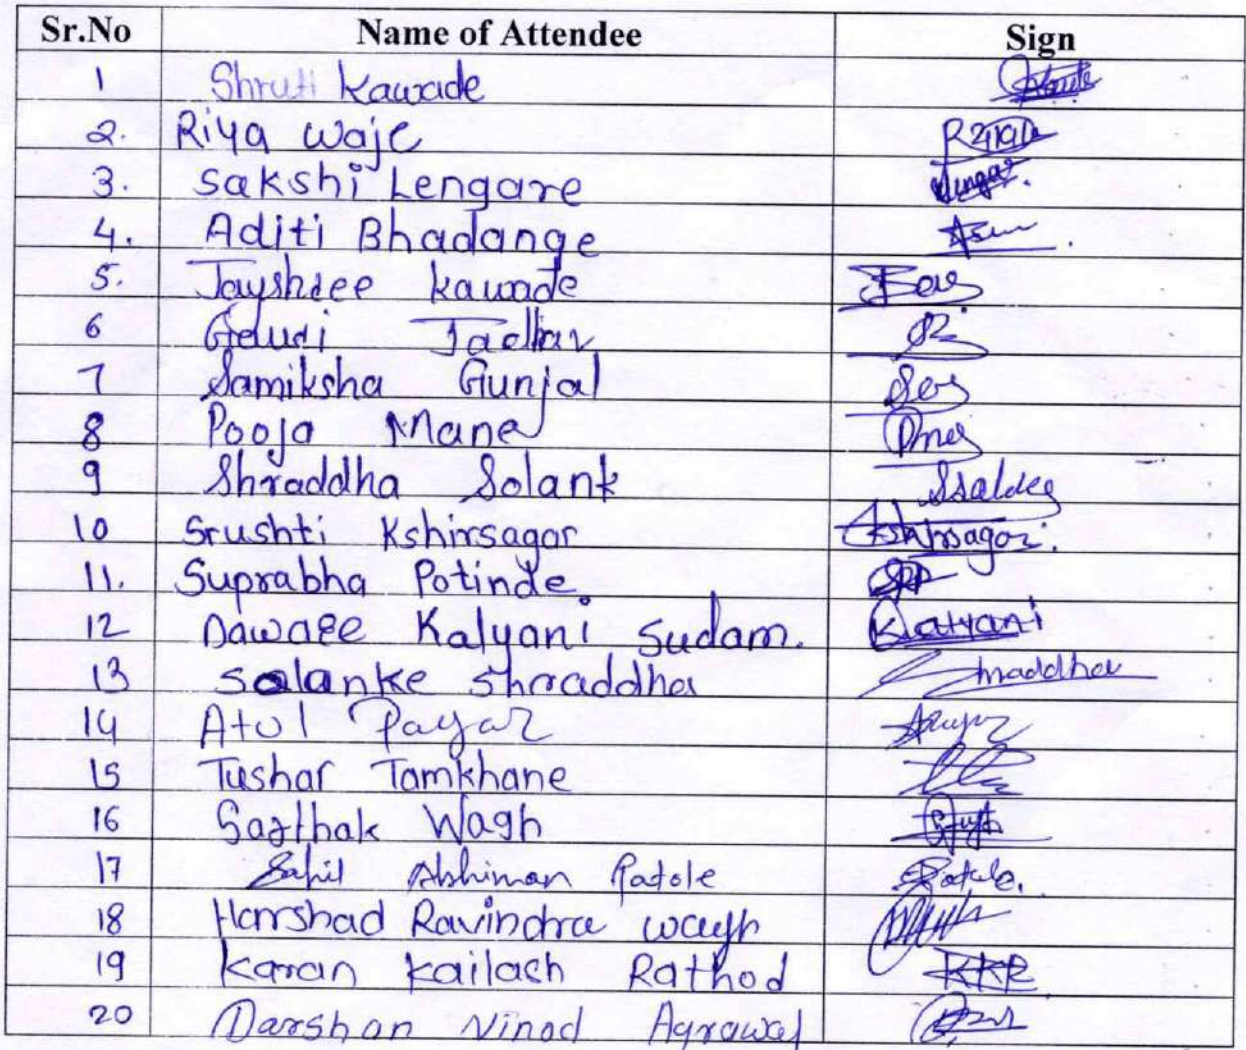 Sr.No Name of Attendee Sign
1 Shruti Kawade
2. Riya Waje
3. Sakshi Lengare
4. Aditi Bhadange
5. Jayshree Kawade
6 Gauri Jadhav
7 Samiksha Gunjal
8 Pooja Mane
9 Shraddha Solank
10 Srushti Kshirsagar Kshirsagar.
11. Suprabha Potinde.
12 Daware Kalyani Sudam. Kalyani
13 Solanke Shraddha Shraddha
14 Atul Payar
15 Tushar Tamkhane
16 Sarthak Wagh
17 Sahil Abhiman Patole Patole.
18 Harshad Ravindra Wagh
19 Karan Kailash Rathod KKR
20 Darshan Vinod Agrawal